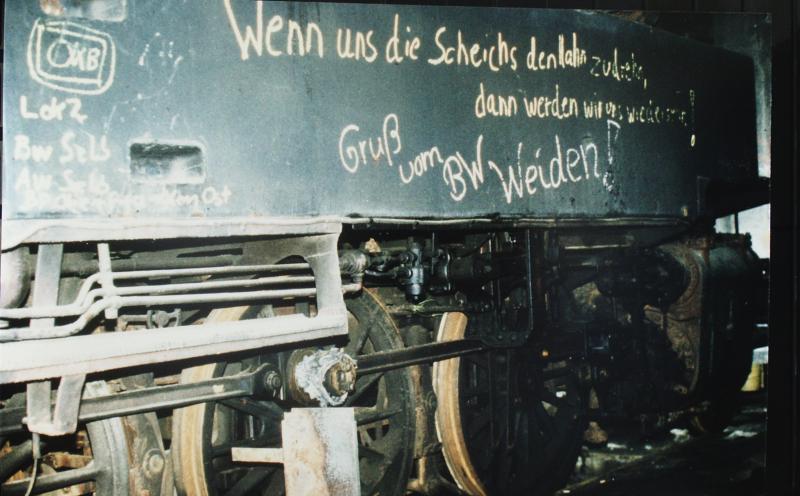 ÖKB
Lok 2
Bw Selb
AW Selb
Wenn uns die Scheichs den Hahn zudrehn,
dann werden wir uns wiedersehn!
Gruß
vom
BW Weiden!